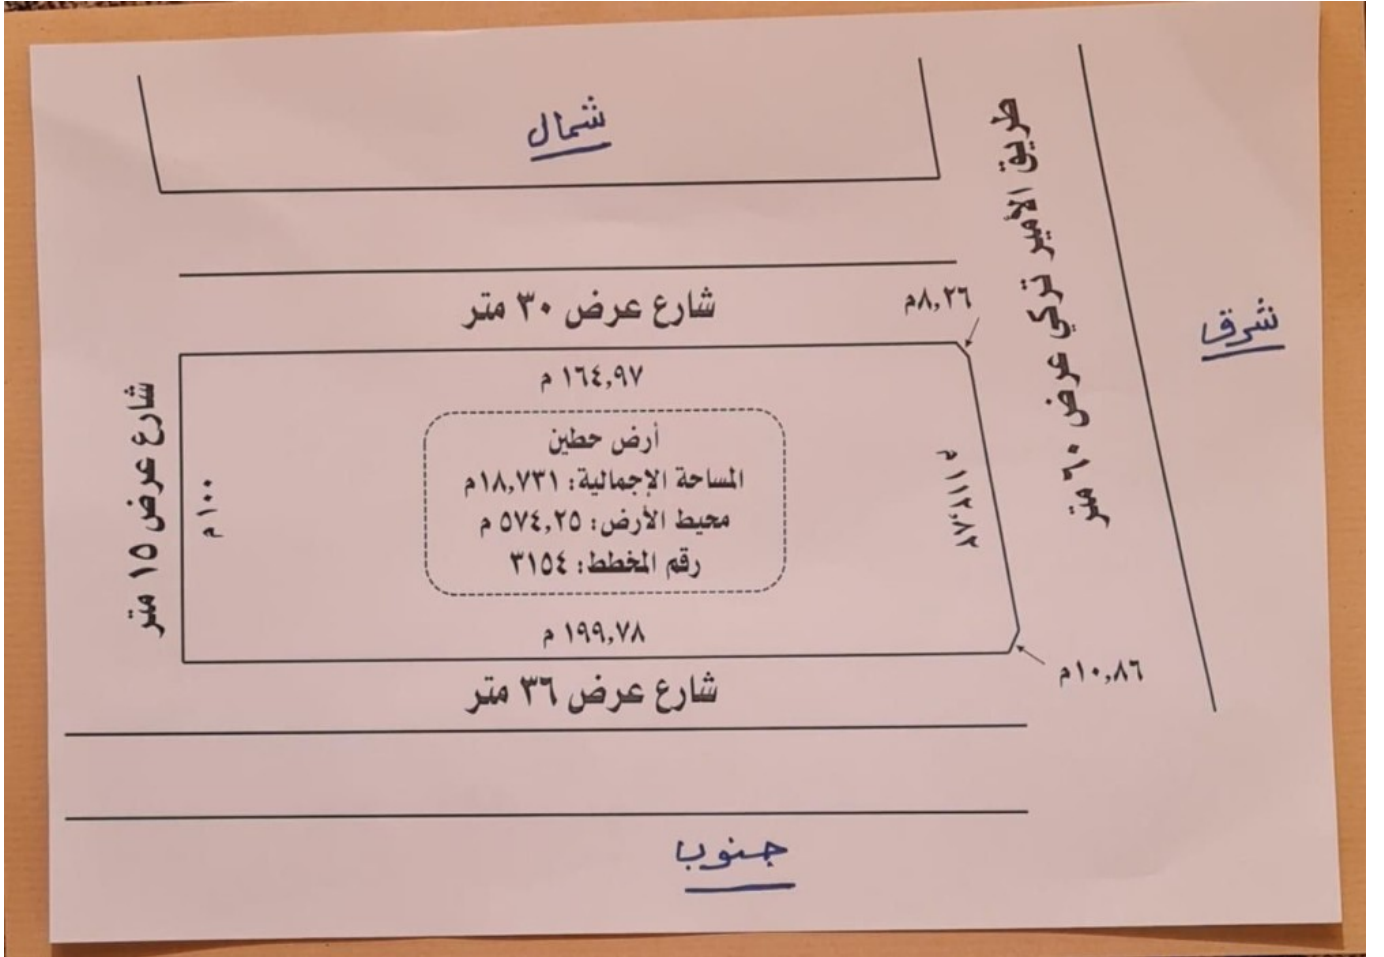 شمال
طريق الأمير تركي عرض ٦٠ متر
شرق
شارع عرض ٣٠ متر
٨,٢٦م
١٦٤,٩٧ م
شارع عرض ١٥ متر
١٠٠ م
أرض حطين
المساحة الإجمالية: ١٨,٧٣١م
محيط الأرض: ٥٧٤,٢٥ م
رقم المخطط: ٣١٥٤
١١٢,٨٢ م
١٩٩,٧٨ م
١٠,٨٦م
شارع عرض ٣٦ متر
جنوب